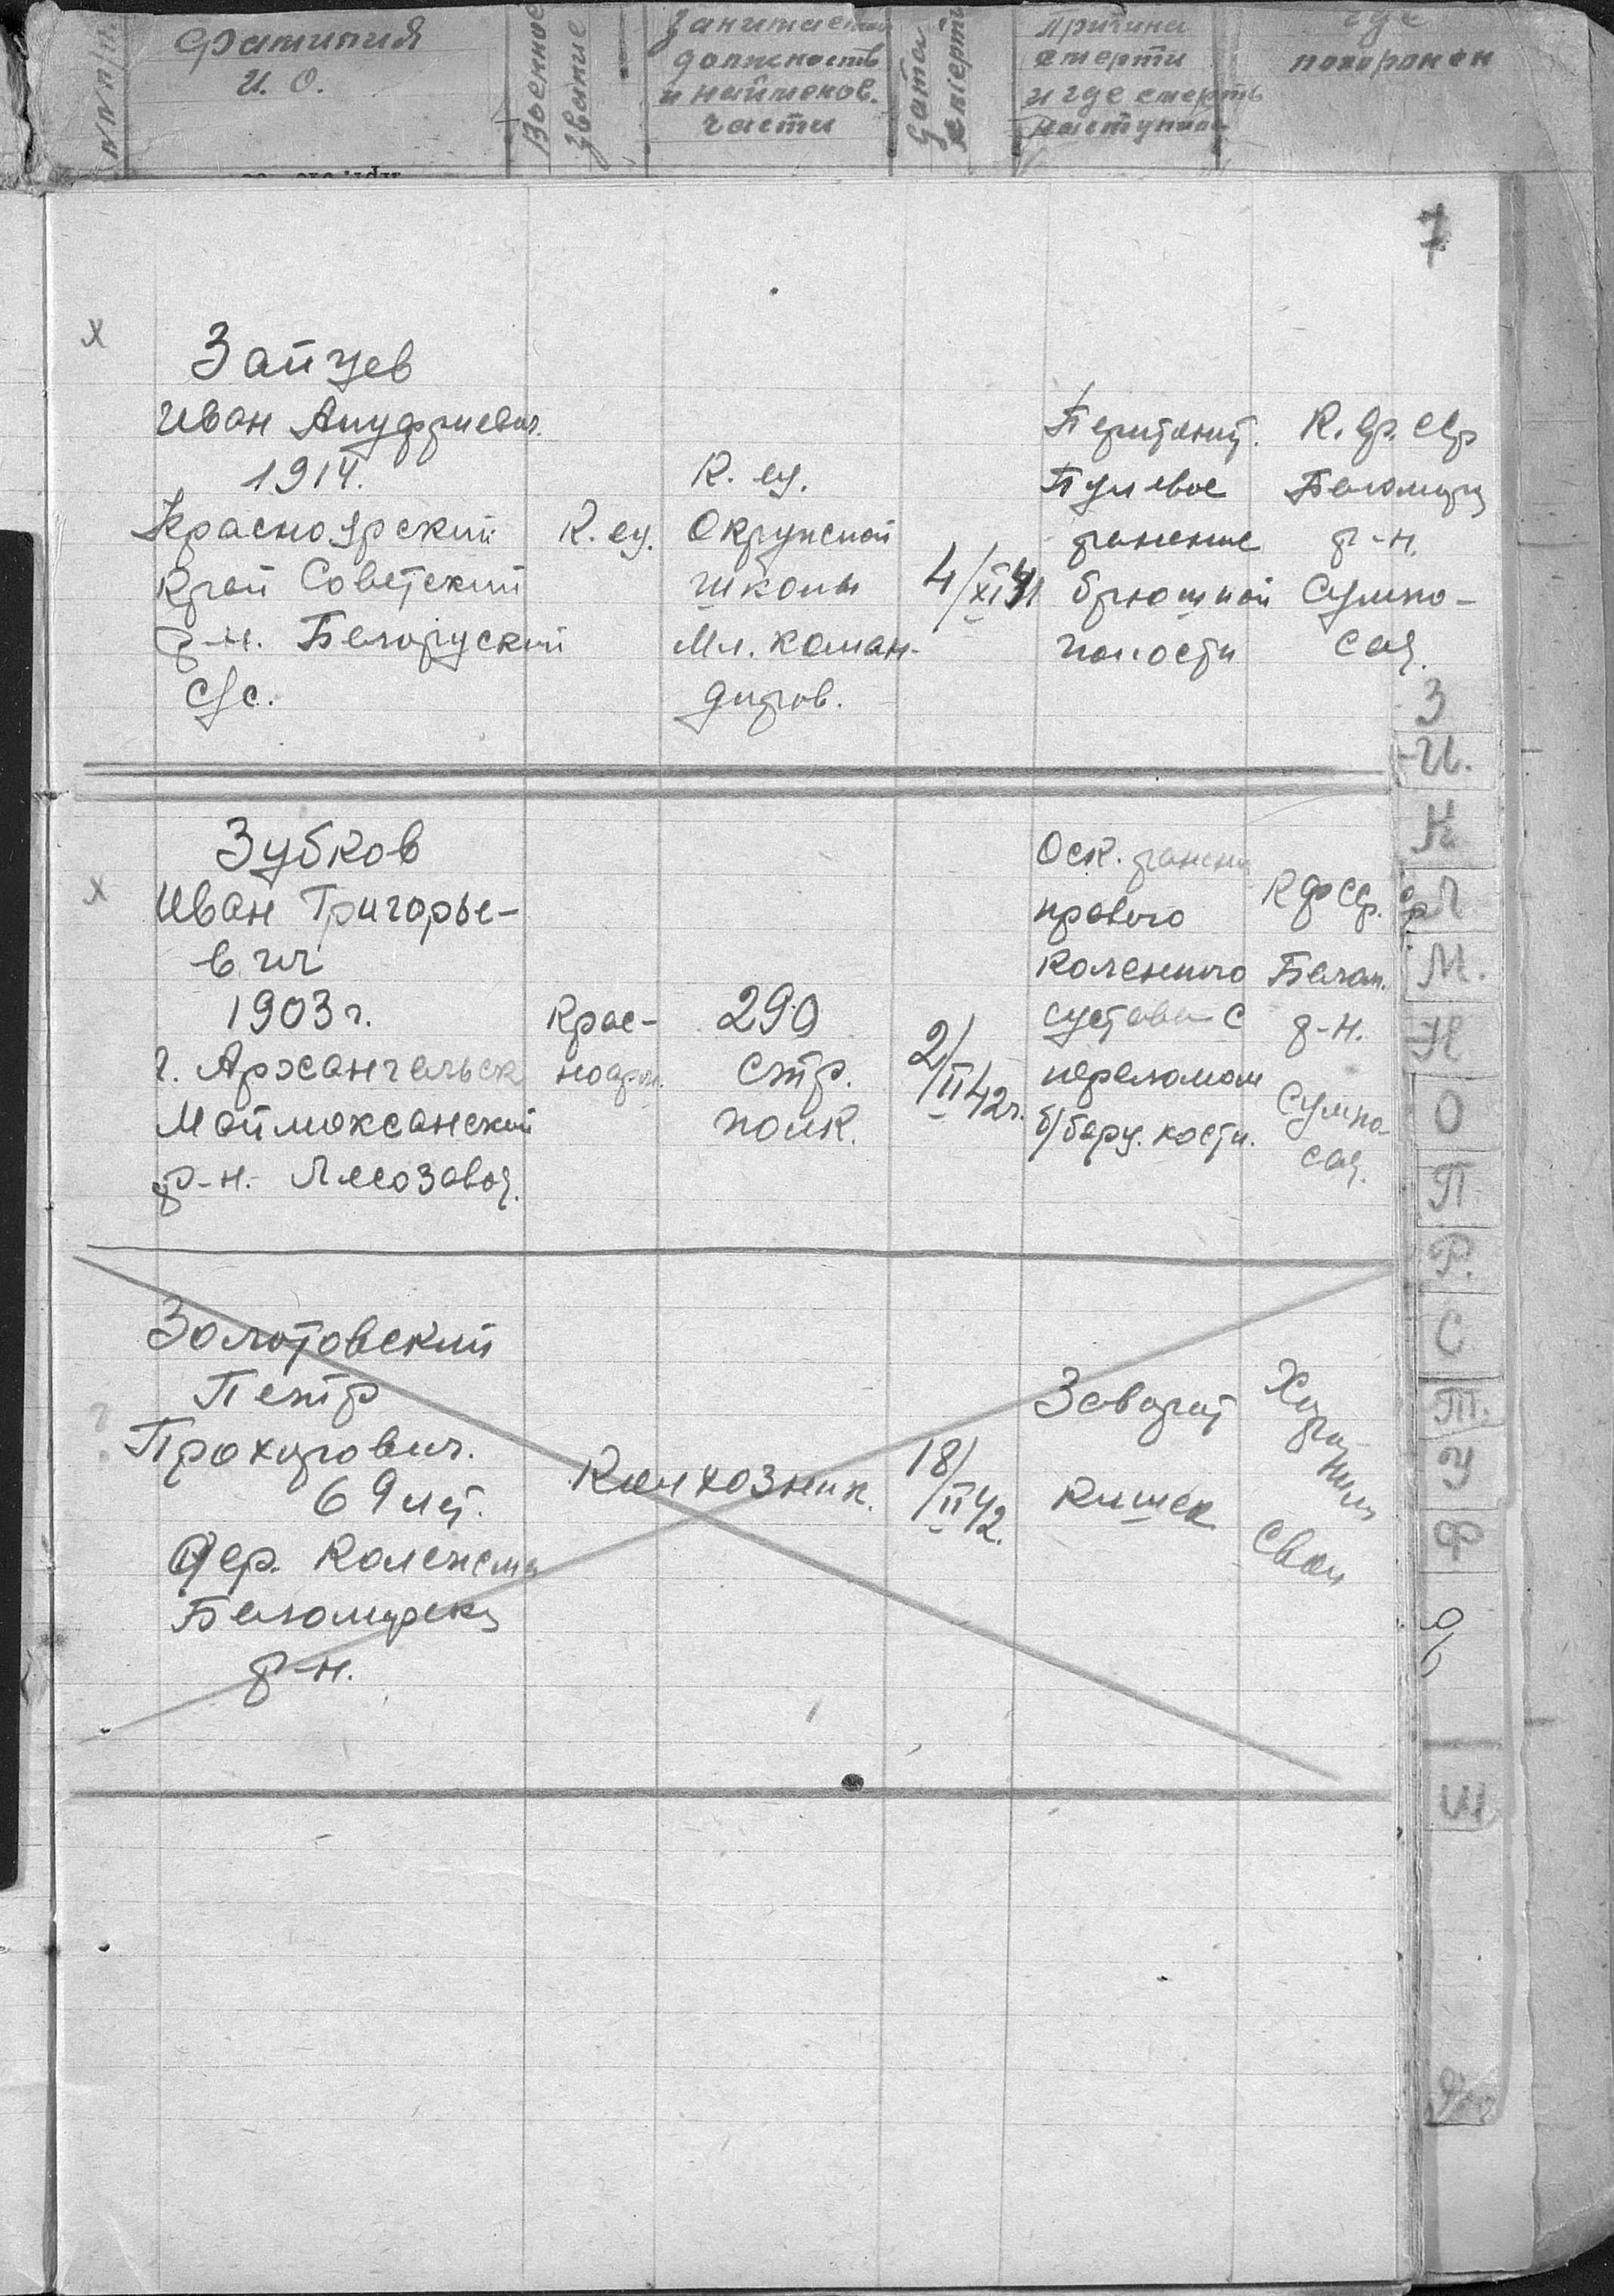 № п/п
Фамилия
И. О.
Военное
звание
Занимаемая
должность
и наименов.
части
Дата
смерти
Причина
смерти
и где смерть
наступила
где
похоронен
7
х
Зайцев
Иван Ануфриевич.
1914.
Красноярский
край Советский
р-н. Белоруский
с/с.
К. ец.
К. ец.
Окружной
школы
Мл. коман-
диров.
4/XI 41
Перитонит.
Пулевое
ранение
брюшной
полости
К. Ф. ССр
Беломор
р-н.
Сумпо-
сад.
х
Зубков
Иван Григорье-
вич
1903 г.
г. Архангельск
Маймаксанский
р-н. Лесозавод.
Крас-
ноарм.
290
стр.
полк.
2/II 42г.
Оск. ранение
правого
коленного
сустава с
переломом
б/берц. кости.
КФССр.
Белом.
р-н.
Сумпо-
сад.
?
Золотовский
Петр
Прохорович.
69 лет.
Дер. Колежма
Беломорск
р-н.
Колхозник.
18/II 42.
Заворот
кишек
Хоронили
свои
З
И.
К
Л
М.
Н
О
П
Р.
С
Т.
У
Ф
Ш